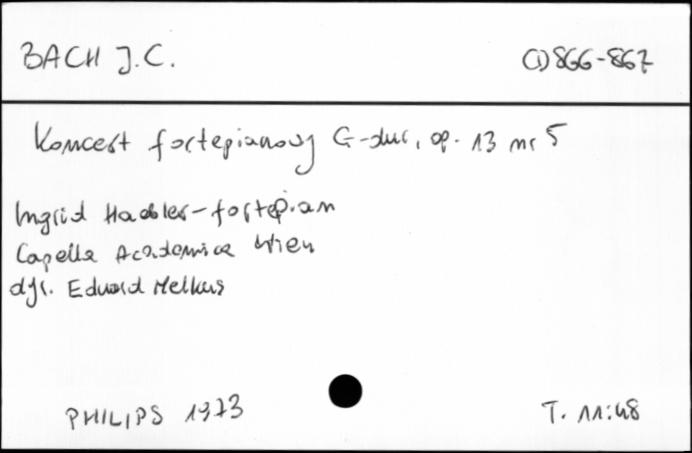 BACH J.C.
CD 866-867
Koncert fortepianowy G-dur, op. 13 nr 5
Ingrid Haebler-fortepian
Capella Academica Wien
dyr. Eduard Melkus
PHILIPS 1973
T. 11:48